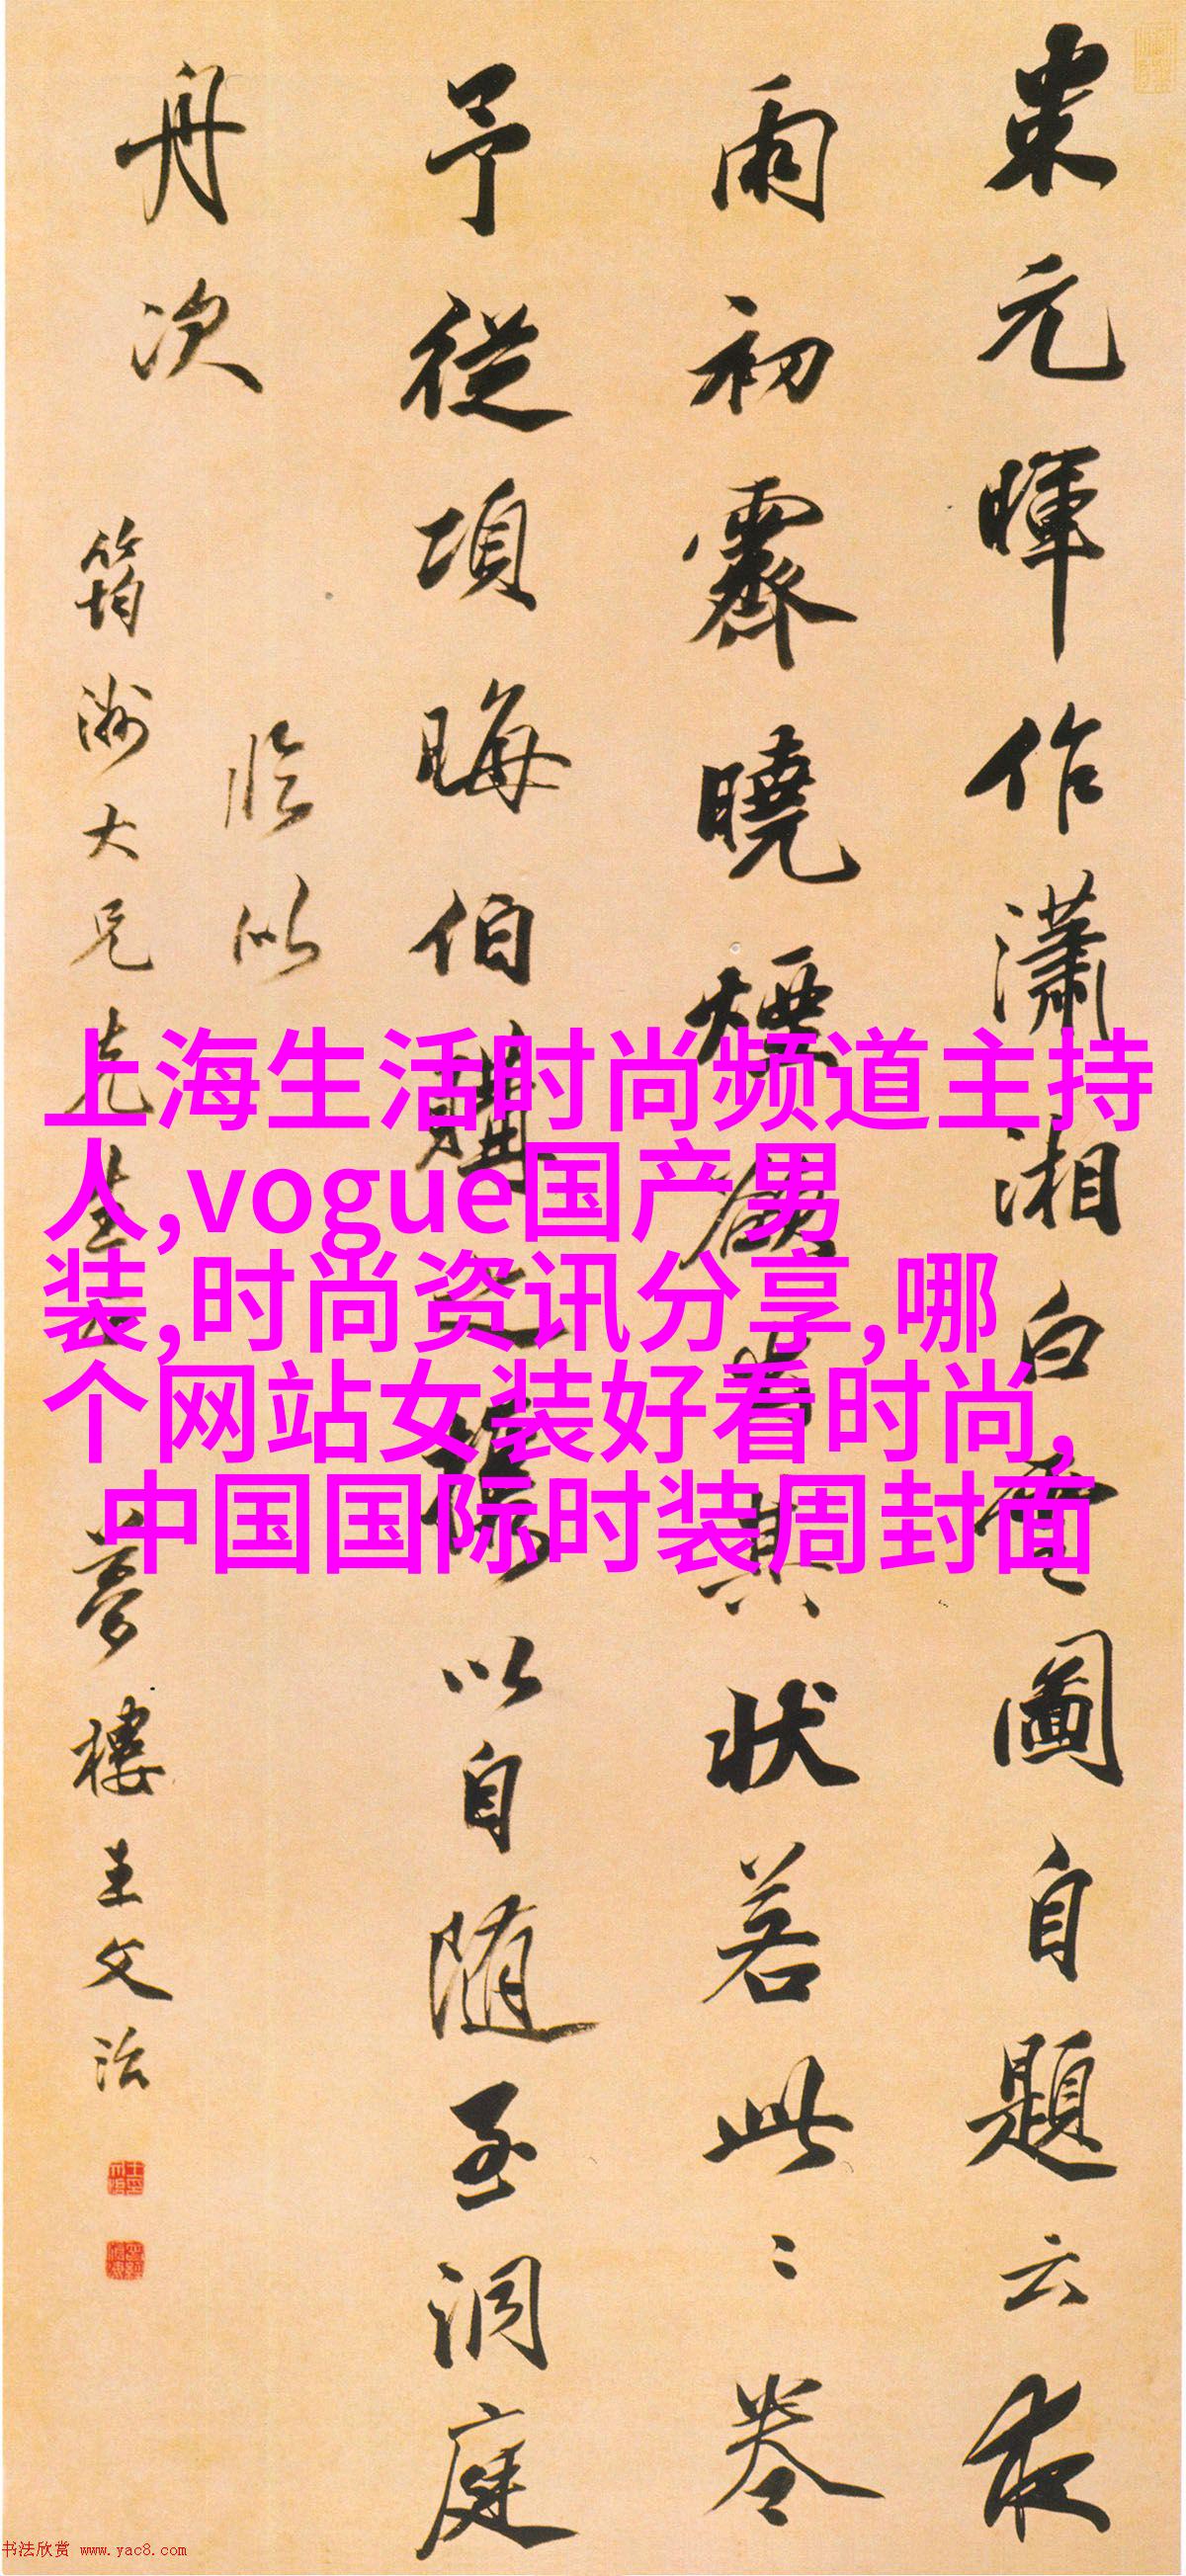 米元暉作瀟湘白雲圖自題云夜
雨初霽曉煙欲出其狀若此〻卷
予從項晦伯購之攜以自隨至洞庭
舟次
臨似
筠洲大兄先生
夢樓王文治
上海生活时尚频道主持
人,vogue国产男
装,时尚资讯分享,哪
个网站女装好看时尚,
中国国际时装周封面
书法欣赏 www.yac8.com